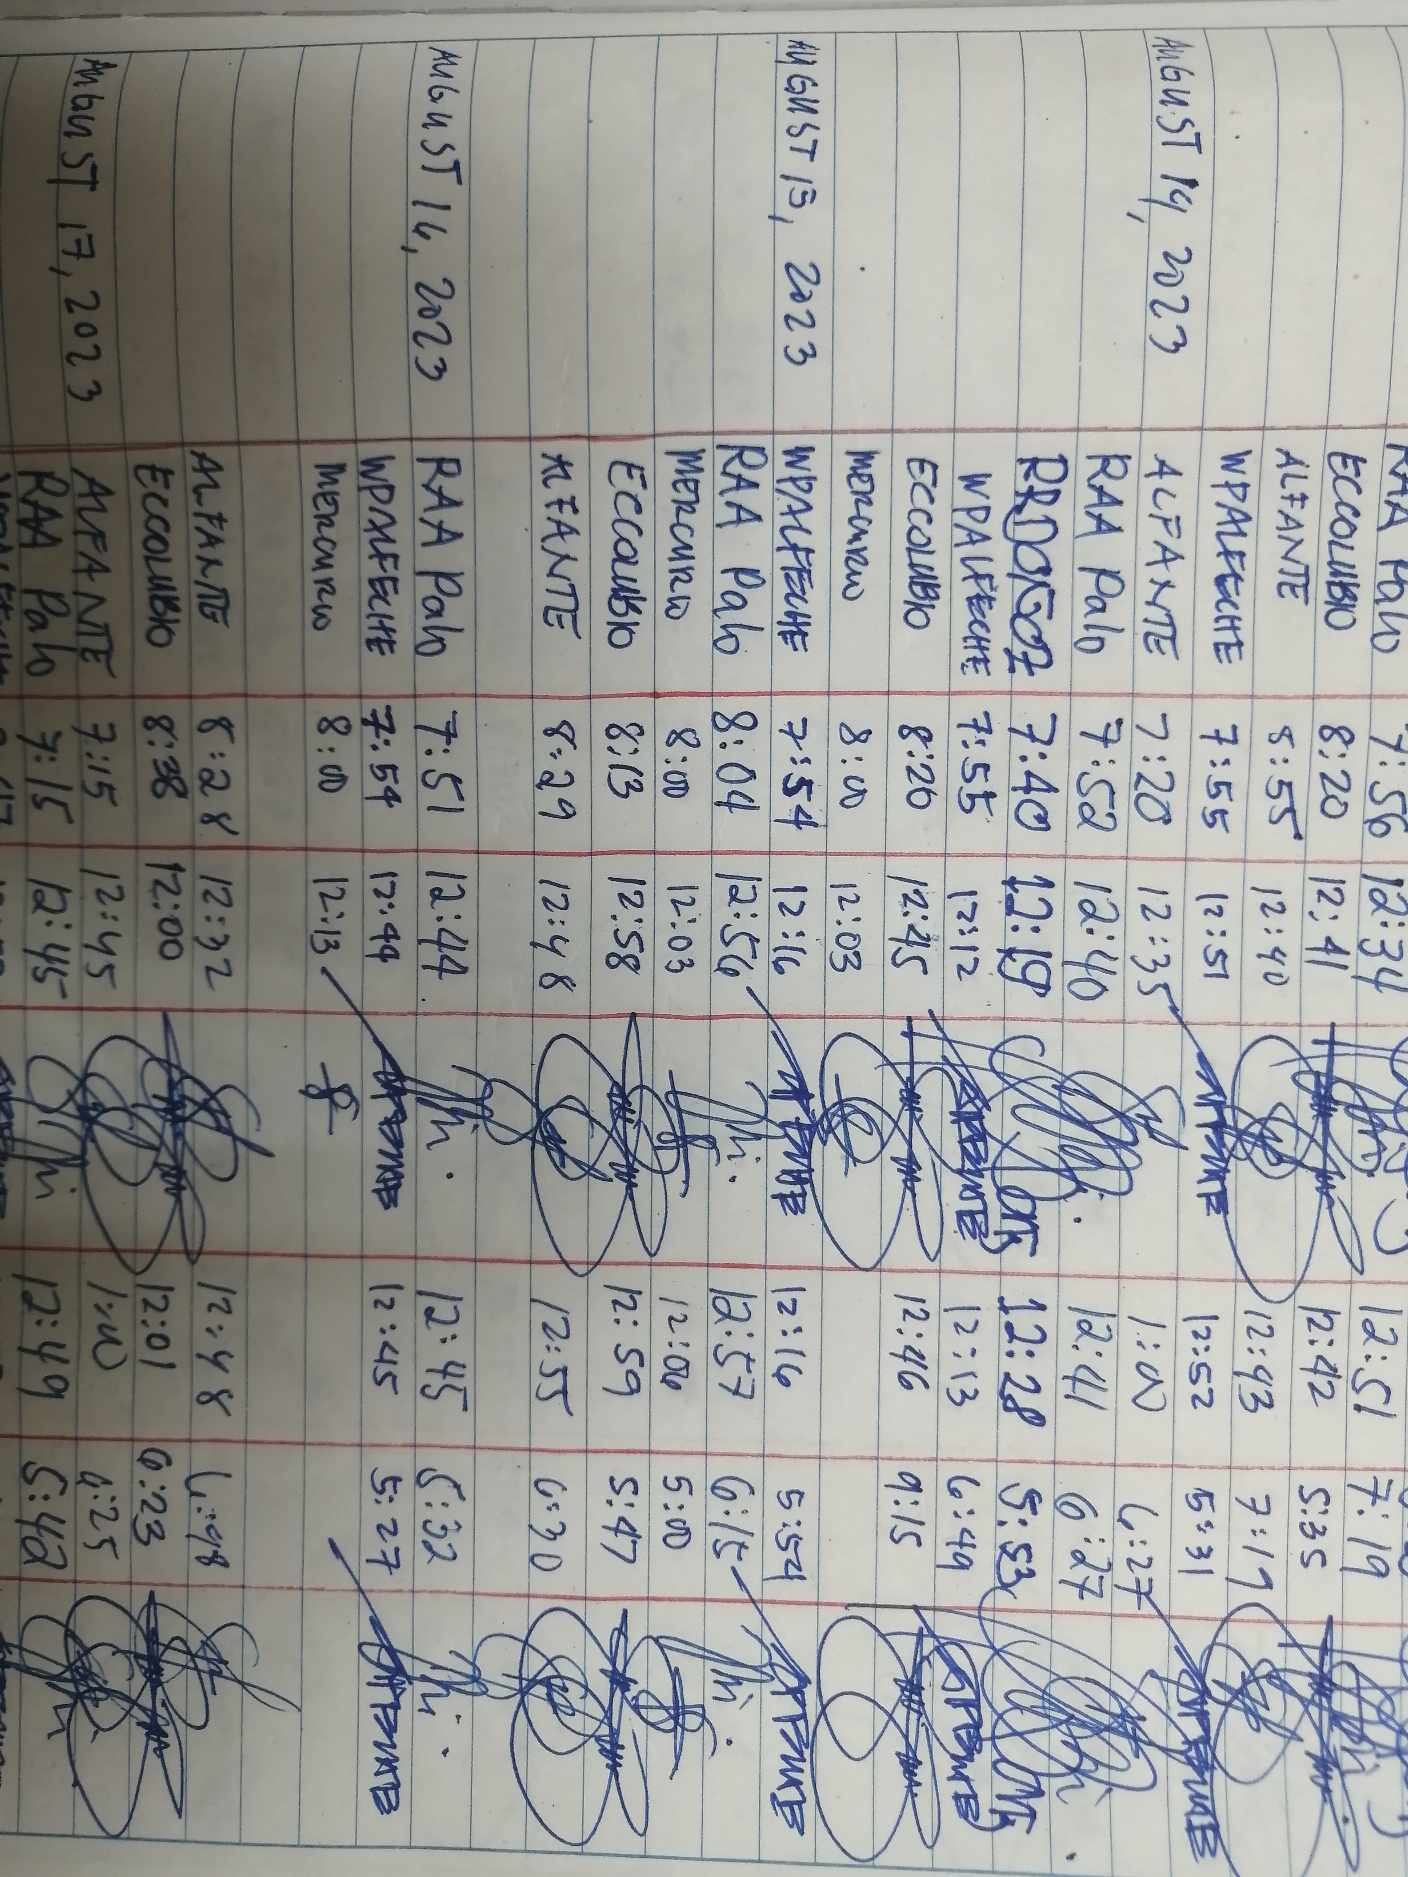 RAA Palo 7:56 12:34 12:51 7:19
ECCOLUBIO 8:20 12:41 12:42 5:35
ALFANTE 8:55 12:40 12:43 7:19
WPALFECHE 7:55 12:51 12:52 5:31
AUGUST 14, 2023 ALFANTE 7:20 12:35 1:00 6:27
RAA Palo 7:52 12:40 12:41 6:27
7:40 12:19 12:28 5:53
WPALFECHE 7:55 12:12 12:13 6:49
ECCOLUBIO 8:20 12:45 12:46 9:15
MERCURIO 8:00 12:03
AUGUST 15, 2023 WPALFECHE 7:54 12:16 12:16 5:54
RAA Palo 8:04 12:56 12:57 6:15
MERCURIO 8:00 12:03 12:06 5:00
ECCOLUBIO 8:13 12:58 12:59 5:47
ALFANTE 8:29 12:48 12:55 6:30
AUGUST 16, 2023 RAA Palo 7:51 12:44 12:45 5:32
WPALFECHE 7:54 12:44 12:45 5:27
MERCURIO 8:00 12:13
ALFANTE 8:28 12:32 12:48 6:48
ECCOLUBIO 8:38 12:00 12:01 6:23
AUGUST 17, 2023 ALFANTE 7:15 12:45 1:00 6:25
RAA Palo 7:15 12:45 12:49 5:42